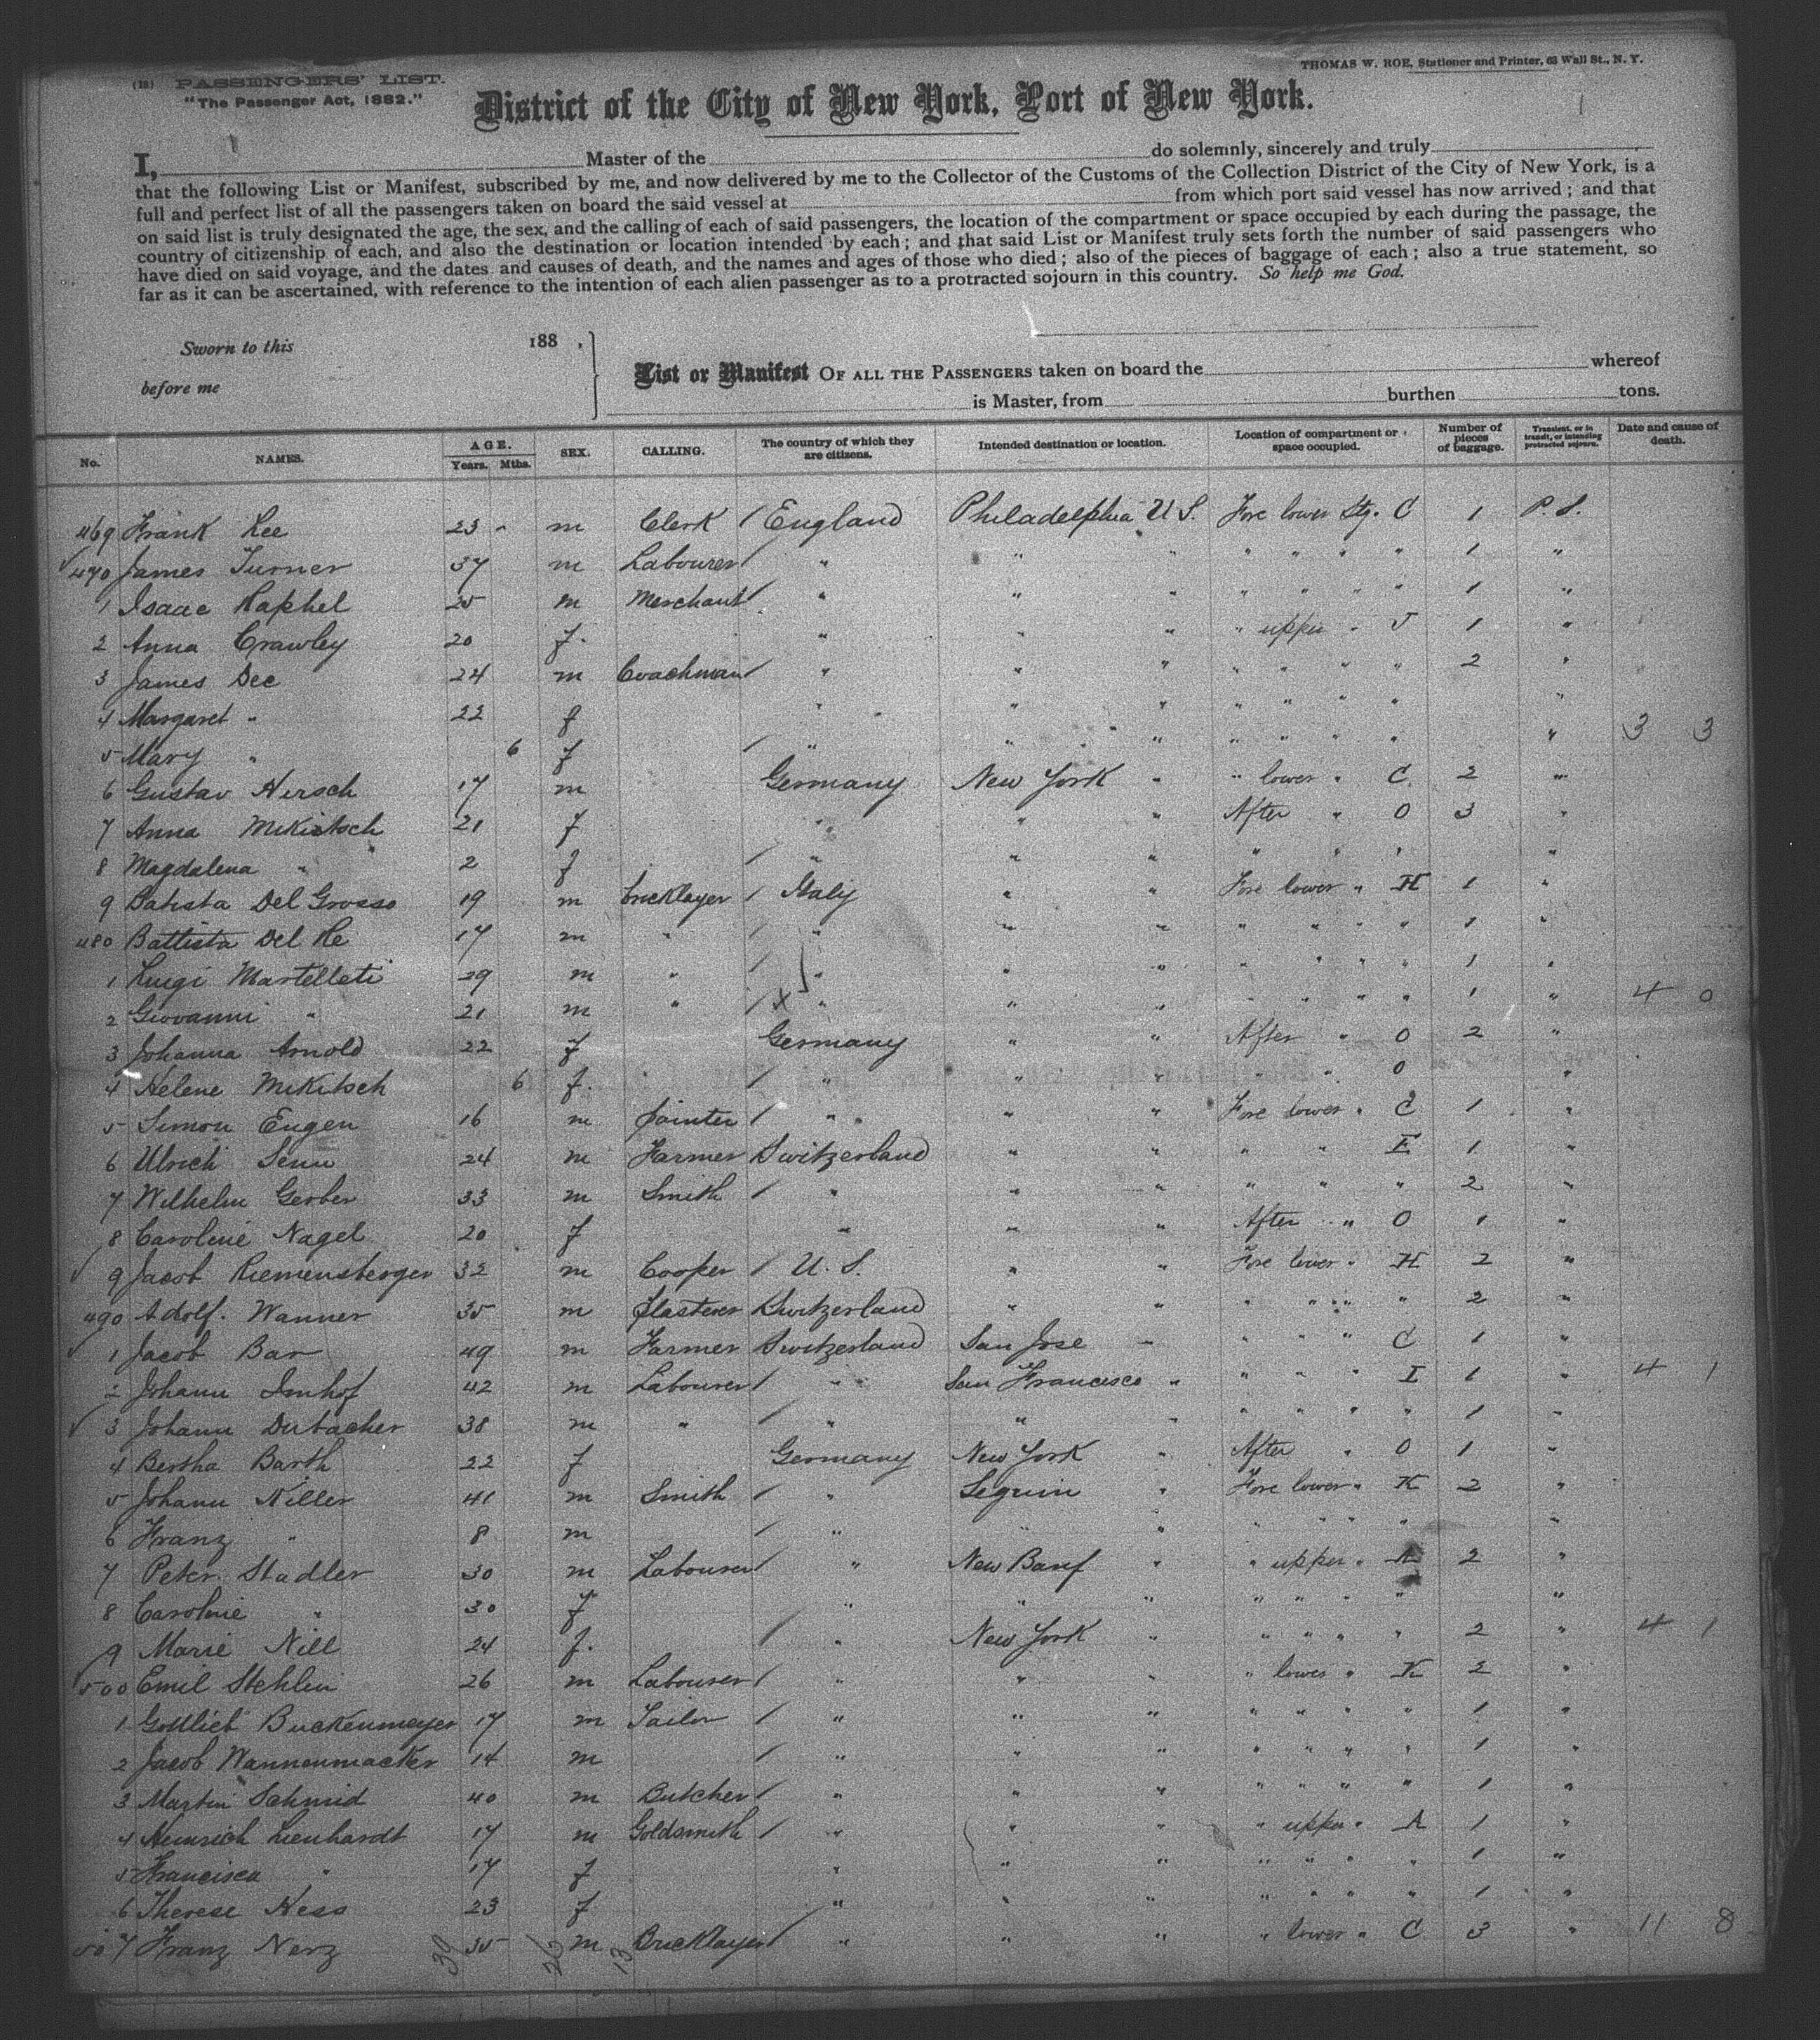 (18) PASSENGERS' LIST.
THOMAS W. ROE, Stationer and Printer, 63 Wall St., N. Y.
"The Passenger Act, 1882."
District of the City of New York, Port of New York.
I, Master of the do solemnly, sincerely and truly
that the following List or Manifest, subscribed by me, and now delivered by me to the Collector of the Customs of the Collection District of the City of New York, is a
full and perfect list of all the passengers taken on board the said vessel at from which port said vessel has now arrived; and that
on said list is truly designated the age, the sex, and the calling of each of said passengers, the location of the compartment or space occupied by each during the passage, the
country of citizenship of each, and also the destination or location intended by each; and that said List or Manifest truly sets forth the number of said passengers who
have died on said voyage, and the dates and causes of death, and the names and ages of those who died; also of the pieces of baggage of each; also a true statement, so
far as it can be ascertained, with reference to the intention of each alien passenger as to a protracted sojourn in this country. So help me God.
Sworn to this 188 .
before me
List or Manifest OF ALL THE PASSENGERS taken on board the whereof
is Master, from burthen tons.
No. NAMES. AGE. Years. Mths. SEX. CALLING. The country of which they are citizens. Intended destination or location. Location of compartment or space occupied. Number of pieces of baggage. Transient, or in transit, or intending protracted sojourn. Date and cause of death.
469 Frank Lee 23 - m Clerk / England Philadelphia U S. Fore lower Stg. C 1 P. S.
470 James Turner 37 m Labourer / " " " " " " " 1 "
1 Isaac Raphel 25 m Merchant / " " " " " " " 1 "
2 Anna Crawley 20 f. " " " " upper " J 1 "
3 James Dee 24 m Coachman / " " " " " " " 2 "
4 Margaret " 22 f " " " " " " " "
5 Mary " 6 f / " " " " " " " " 3 3
6 Gustav Hirsch 17 m Germany New York " " lower " C 2 "
7 Anna Mikitsch 21 f " " " After " O 3 "
8 Magdalena " 2 f / " " " " " " "
9 Batista Del Grosso 19 m bricklayer / Italy " " Fore lower " H 1 "
480 Battista Del Re 17 m " / " " " " " " " 1 "
1 Luigi Martelleti 29 m " / " " " " " " " 1 "
2 Giovanni " 21 m " / X " " " " " " " 1 " 4 0
3 Johanna Arnold 22 f Germany " " After " O 2 "
4 Helene Mikitsch 6 f. / " " " " " O "
5 Simon Eugen 16 m painter / " " " Fore lower " C 1 "
6 Ulrich Senn 24 m Farmer Switzerland " " " " E 1 "
7 Wilhelm Gerber 33 m Smith / " " " " " " 2 "
8 Caroline Nagel 20 f " " " After " O 1 "
9 Jacob Riemensberger 32 m Cooper / U. S. " " Fore lower " H 2 "
490 Adolf. Wanner 35 m plasterer Switzerland " " " " " " 2 "
1 Jacob Bar 49 m Farmer Switzerland San Jose " " " " C 1 "
2 Johann Imhof 42 m Labourer / " San Francisco " " " " I 1 " 4 1
3 Johann Dubacher 38 m " / " " " " " " " 1 "
4 Bertha Barth 22 f Germany New York " After " O 1 "
5 Johann Niller 41 m Smith / " Seguin " Fore lower " K 2 "
6 Franz " 8 m / " " " " " " " "
7 Peter Stadler 30 m Labourer / " New Banf " " upper " A 2 "
8 Caroline " 30 f " " " " " " " "
9 Marie Nill 24 f. / " New York " " " " " 2 " 4 1
500 Emil Stehlin 26 m Labourer / " " " " lower " K 2 "
1 Gottlieb Buckenmeyer 17 m Tailor / " " " " " " " 1 "
2 Jacob Wannenmacker 14 m / " " " " " " " 1 "
3 Martin Schmid 40 m Butcher / " " " " " " " 1 "
4 Heinrich Lienhardt 17 m Goldsmith / " " " " upper " A 1 "
5 Francisca " 17 f " " " " " " " 1 "
6 Therese Hess 23 f " " " " " " " 1 "
507 Franz Nerz 35 m Bricklayer / " " " " lower " C 3 " 11 8
30 26 13